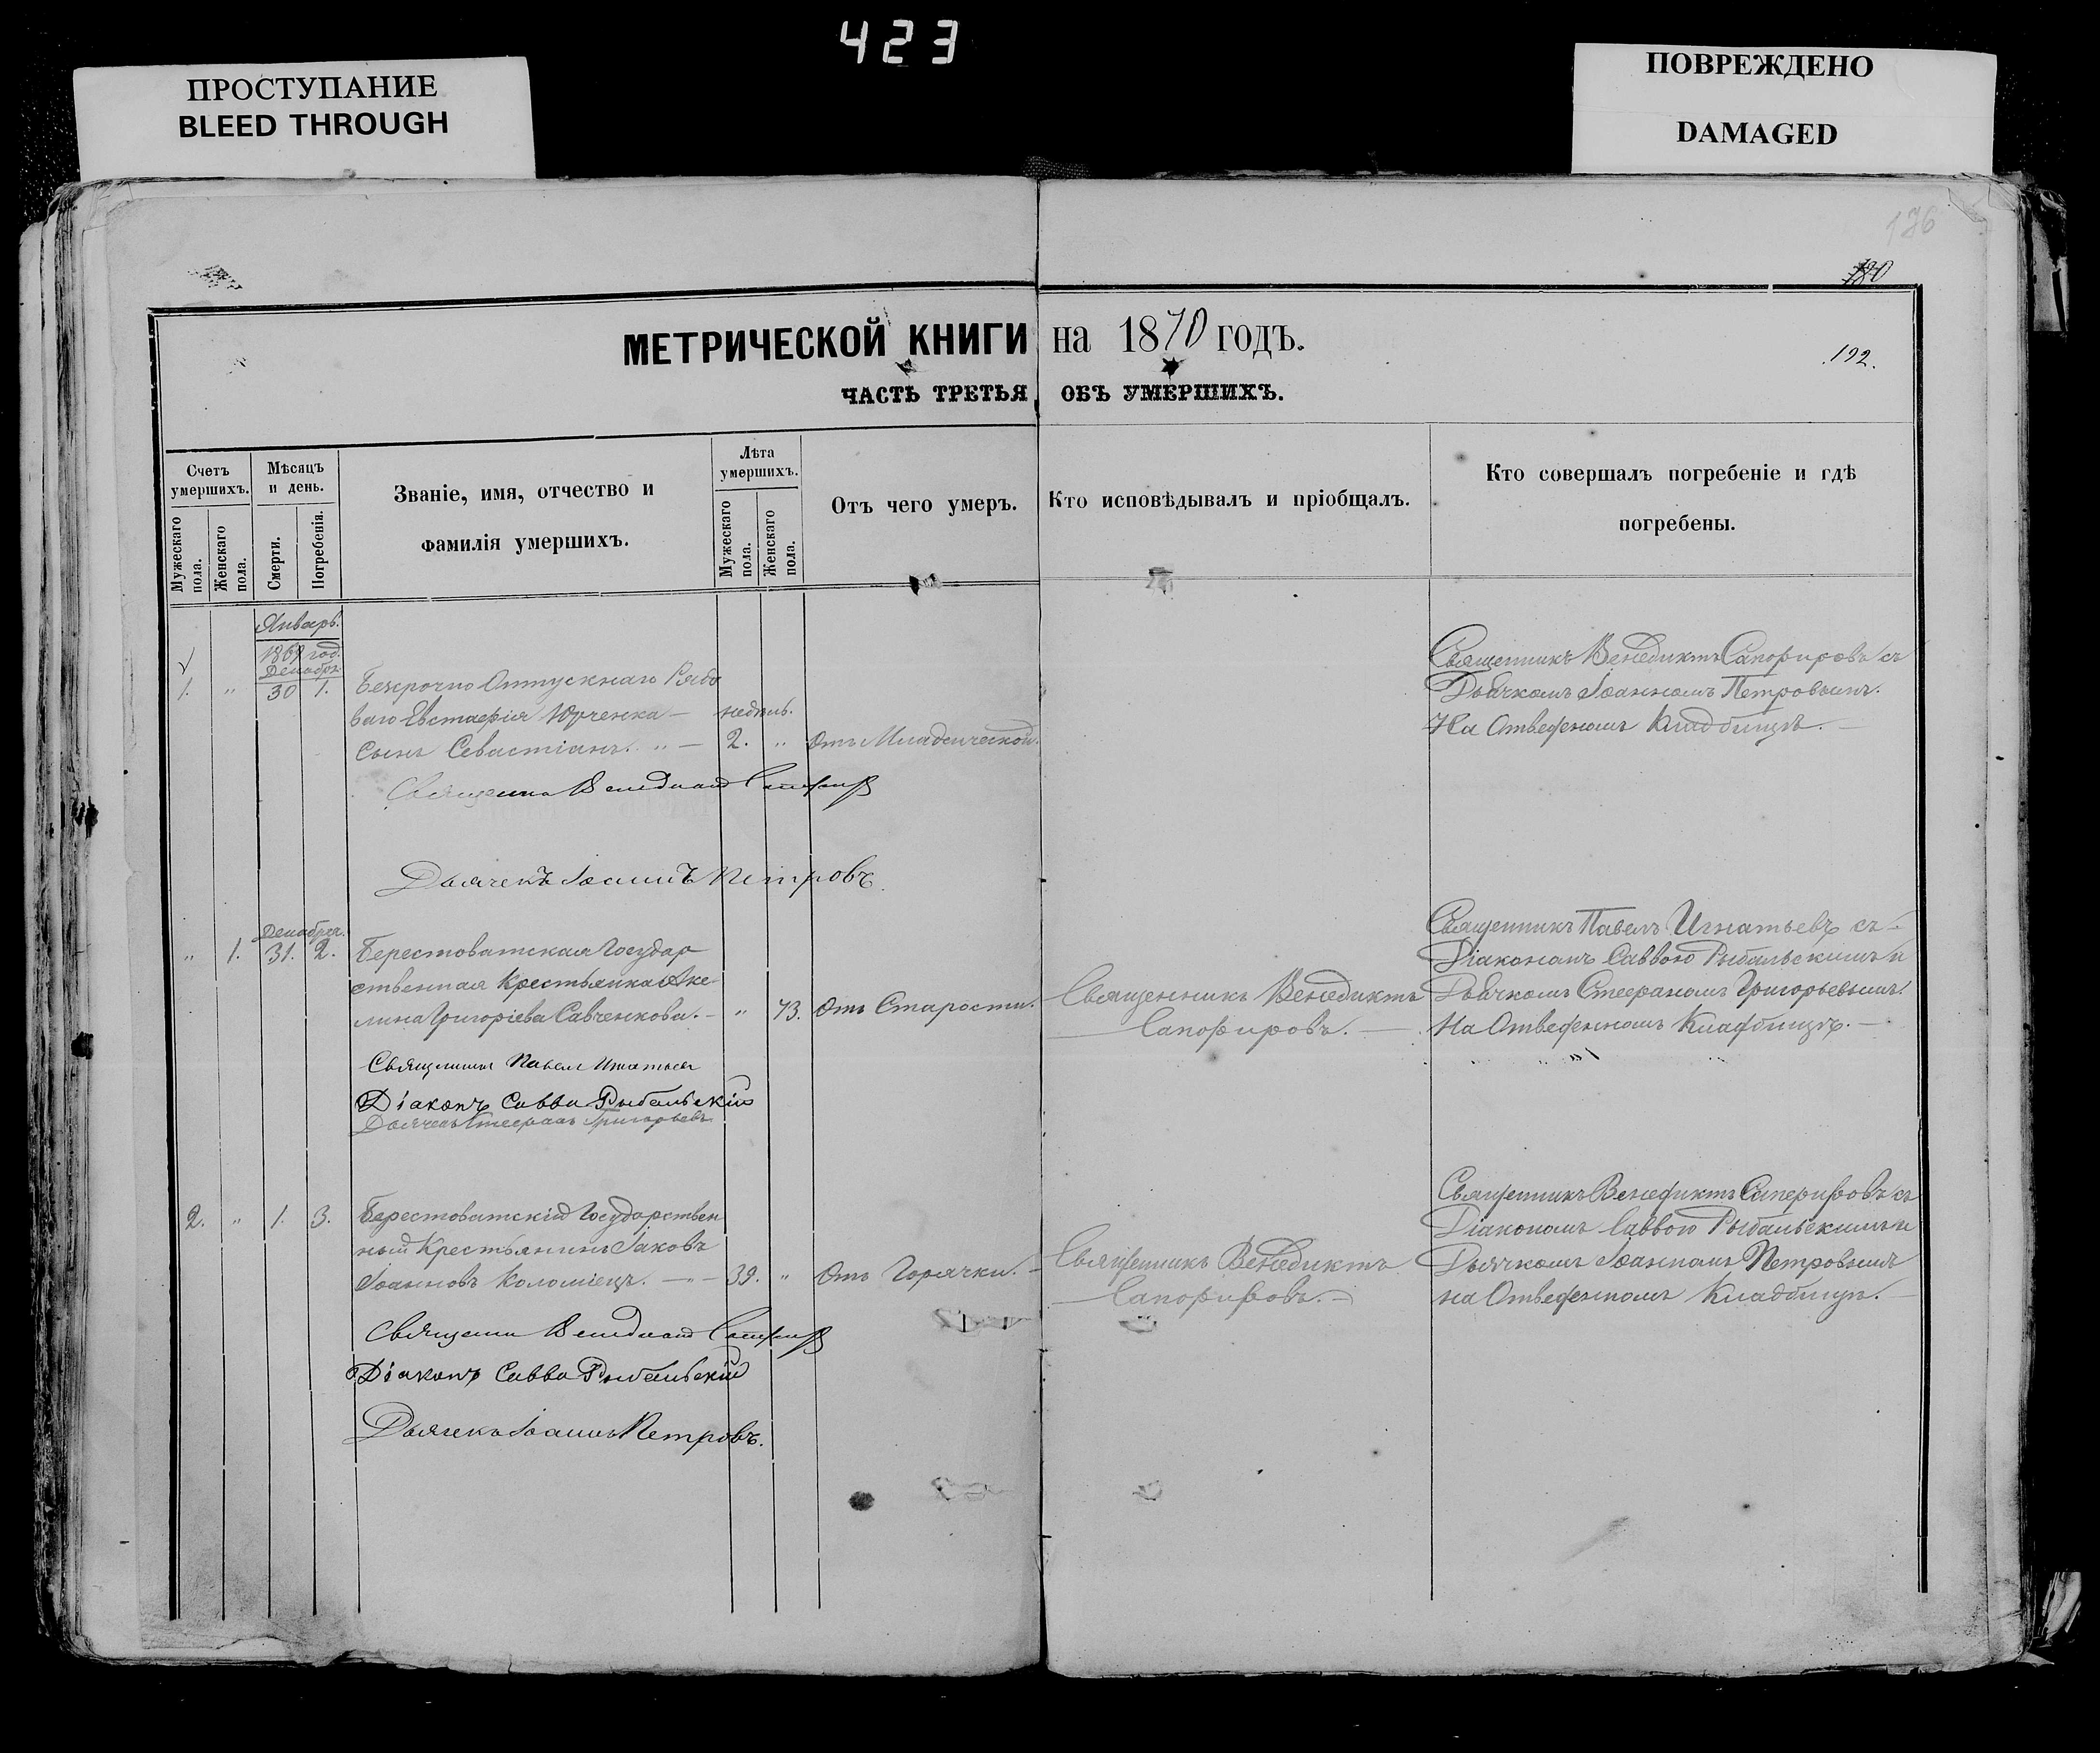 423
ПРОСТУПАНИЕ
BLEED THROUGH
ПОВРЕЖДЕНО
DAMAGED
176
180
МЕТРИЧЕСКОЙ КНИГИ на 1870 годъ.
192.
ЧАСТЬ ТРЕТЬЯ ОБЪ УМЕРШИХЪ.
Счетъ умершихъ.
Мужескаго пола.
Женскаго пола.
Мѣсяцъ и день.
Смерти.
Погребенія.
Званіе, имя, отчество и
фамилія умершихъ.
Лѣта умершихъ.
Мужескаго пола.
Женскаго пола.
Отъ чего умеръ.
Кто исповѣдывалъ и пріобщалъ.
Кто совершалъ погребеніе и гдѣ
погребены.
Январь.
1869 год.
Декабря
1. " 30 1. Безсрочно Отпускнаго Рядо
ваго Евстафія Юрченка — недѣль.
сынъ Севастіанъ. " — 2. " Отъ Младенческой.
Священникъ Венедиктъ Сапфировъ съ
Дьячкомъ Іоанномъ Петровымъ.
На Отведеномъ Кладбищѣ. —
Священник Венедикт Сапфиров
Дьячекъ Іоаннъ Петровъ
Декабря.
" 1. 31. 2. Берестоватская Государ
ственная Крестьянка Аке
лина Григоріева Савченкова. — " 73. Отъ Старости.
Священникъ Венедиктъ
Сапфировъ. —
Священникъ Павелъ Игнатьевъ съ
Діакономъ Саввою Рыбальскимъ и
Дьячкомъ Стефаномъ Григорьевымъ.
На Отведенномъ Кладбищѣ. —
Священник Павел Игнатьев
Діаконъ Савва Рыбальскій
Дьячекъ Стефанъ Григорьевъ
2. " 1. 3. Берестоватскій Государствен
ный Крестьянинъ Іаковъ
Іоанновъ Коломіецъ. — " — 39. " Отъ Горячки. —
Священникъ Венедиктъ
Сапфировъ. —
Священникъ Венедиктъ Сапфировъ съ
Діакономъ Саввою Рыбальскимъ и
Дьячкомъ Іоанномъ Петровымъ
на Отведенномъ Кладбищѣ. —
Священник Венедикт Сапфиров
Діаконъ Савва Рыбальскій
Дьячекъ Іоаннъ Петровъ.